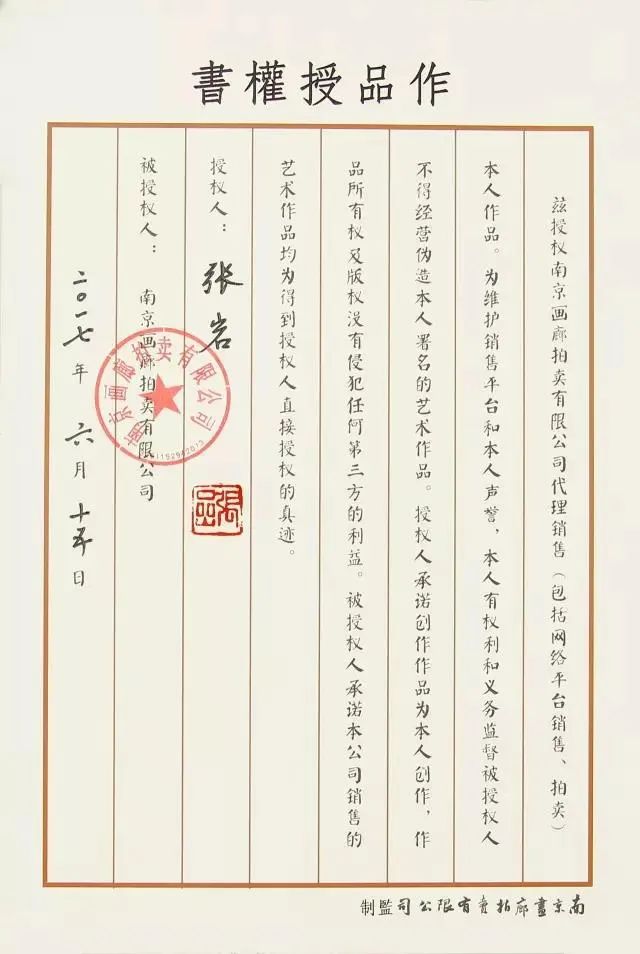 作品授權書
兹授权南京画廊拍卖有限公司代理销售（包括网络平台销售、拍卖）
本人作品。为维护销售平台和本人声誉，本人有权利和义务监督被授权人
不得经营伪造本人署名的艺术作品。授权人承诺创作作品为本人创作，作
品所有权及版权没有侵犯任何第三方的利益。被授权人承诺本公司销售的
艺术作品均为得到授权人直接授权的真迹。
授权人：张岩
被授权人：南京画廊拍卖有限公司
二〇一七年六月十五日
南京画廊拍卖有限公司
南京畫廊拍賣有限公司監制